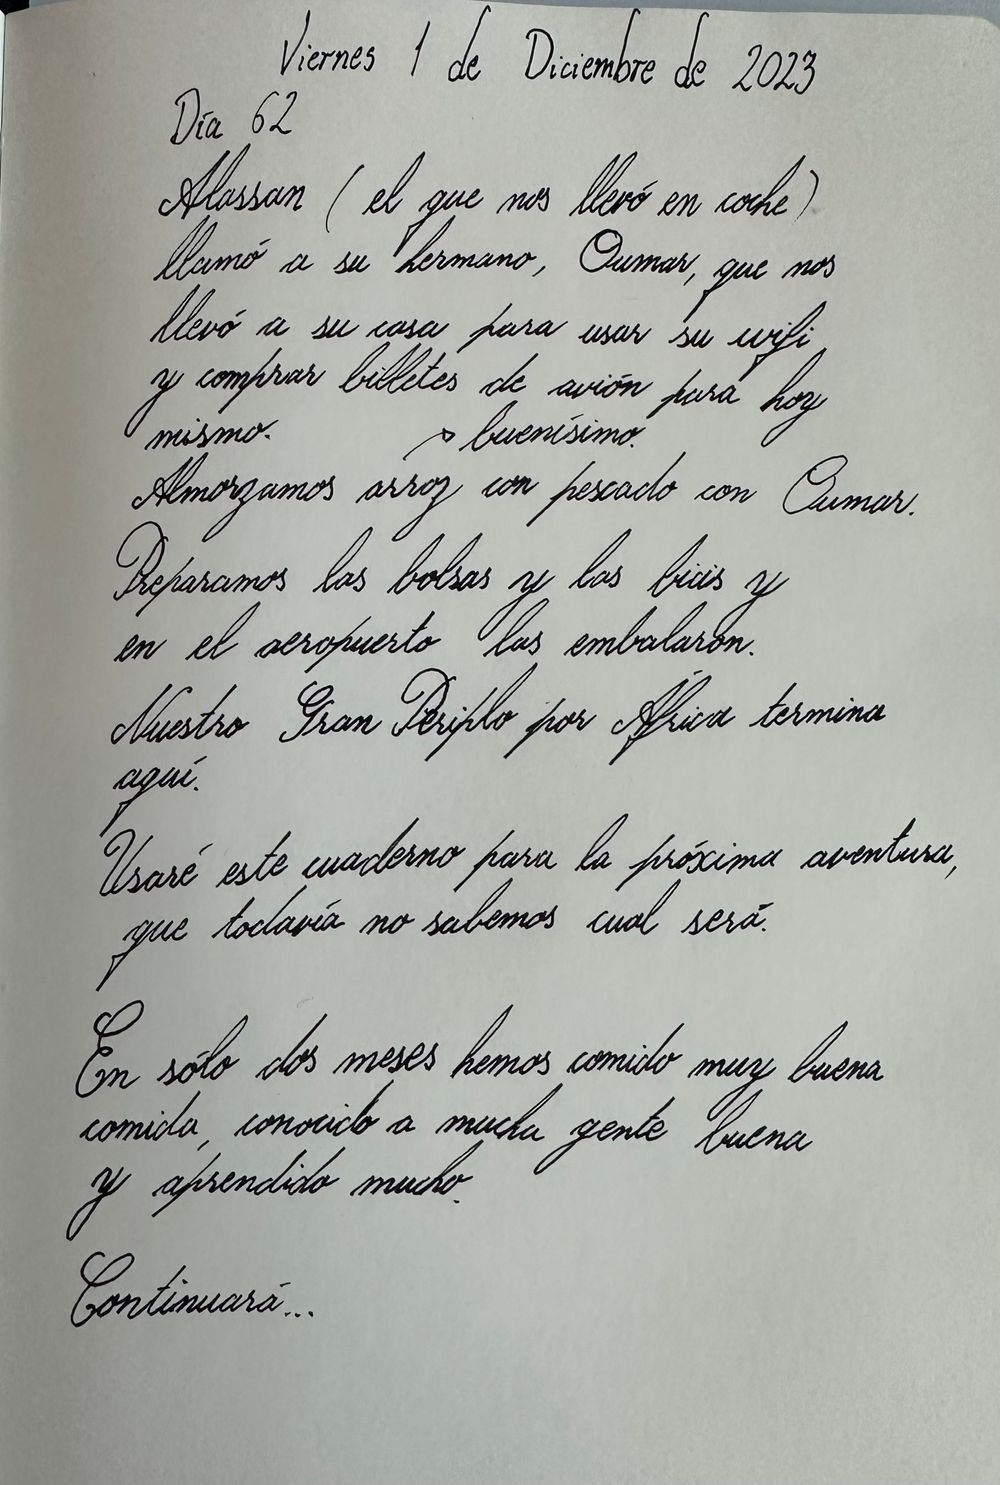 Viernes 1 de Diciembre de 2023
Día 62
Alassan (el que nos llevó en coche)
llamó a su hermano, Oumar, que nos
llevó a su casa para usar su wifi
y comprar billetes de avión para hoy
mismo. → buenísimo.
Almorzamos arroz con pescado con Oumar.
Preparamos las bolsas y las bicis y
en el aeropuerto las embalaron.
Nuestro Gran Periplo por África termina
aquí.
Usaré este cuaderno para la próxima aventura,
que todavía no sabemos cual será.
En sólo dos meses hemos comido muy buena
comida, conocido a mucha gente buena
y aprendido mucho.
Continuará...